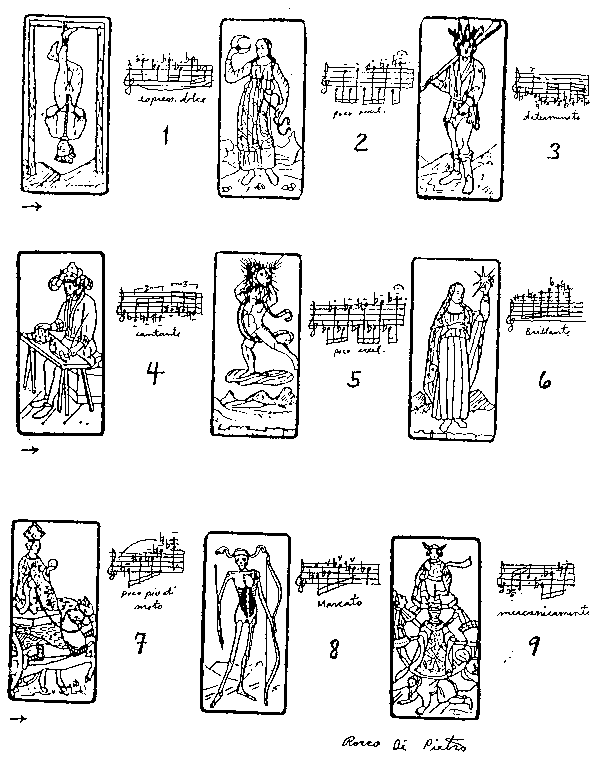 espress. dolce
1
poco accel.
2
determinato
3
cantante
4
poco accel.
5
Brillante
6
poco più di
moto
7
Marcato
8
meccanicamente
9
Rocco Di Pietro